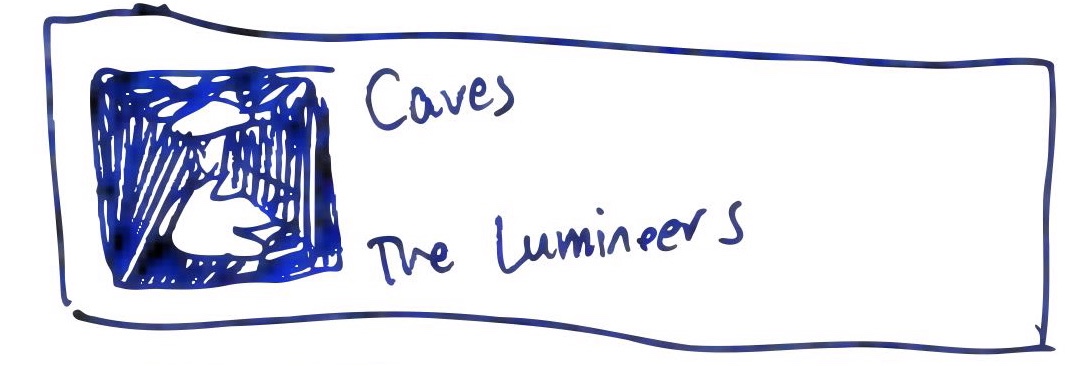 Caves
The Lumineers